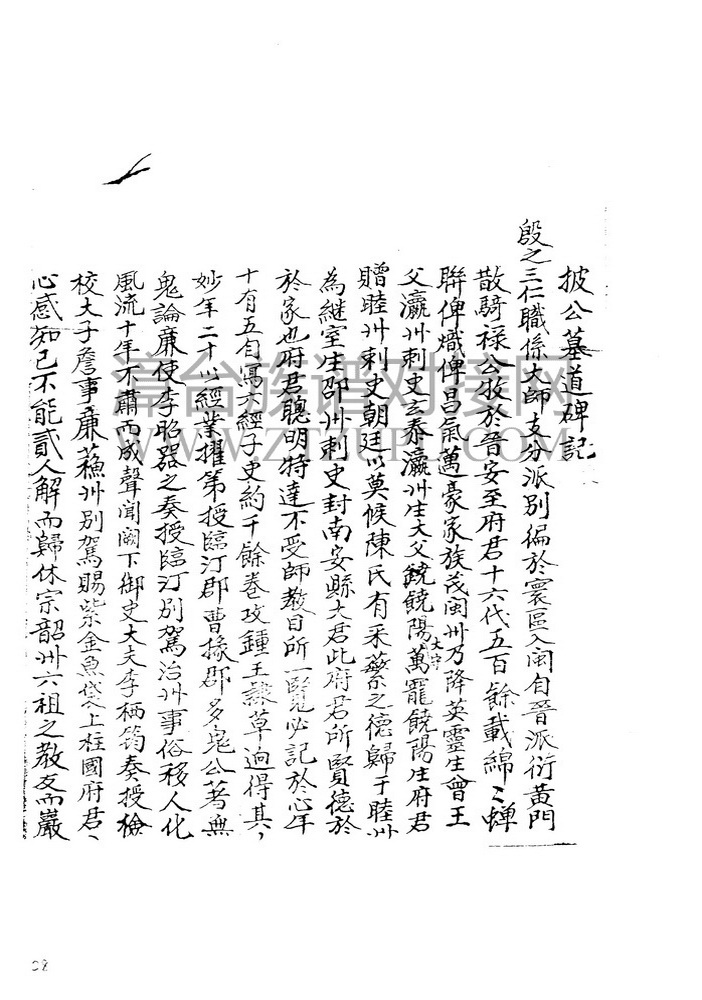 披公墓道碑記
殷之三仁職係大師支分派別徧於寰區入閩自晉派衍黃門
散騎祿公牧於晉安至府君十六代五百餘載綿々蟬
聯俾熾俾昌氣萬豪家族茂閩州乃降英靈生曾王
父瀛州刺史玄泰瀛州生大父饒饒陽太守萬寵饒陽生府君
贈睦州刺史朝廷以莫候陳氏有采蘩之德歸于睦州
為継室生邵州刺史封南安縣大君此府君所賢德於
於家也府君聰明特達不受師敎日所一覽必記於心年
十有五自寫六經子史約千餘卷攻鍾王隸草逈得其、
妙年二十以經業擢第授臨汀郡曹掾郡多鬼公著無
鬼論廉使李昭器之奏授臨汀別駕治州事俗移人化
風流十年不肅而成聲聞闕下御史大夫李栖筠奏授檢
校大子詹事廉蘓州別駕賜紫金魚袋上柱國府君、
心感知己不能貳人解而歸休宗韶州六祖之教友而巖
章台族谱对接网
WWW.ZTZUPU.COM